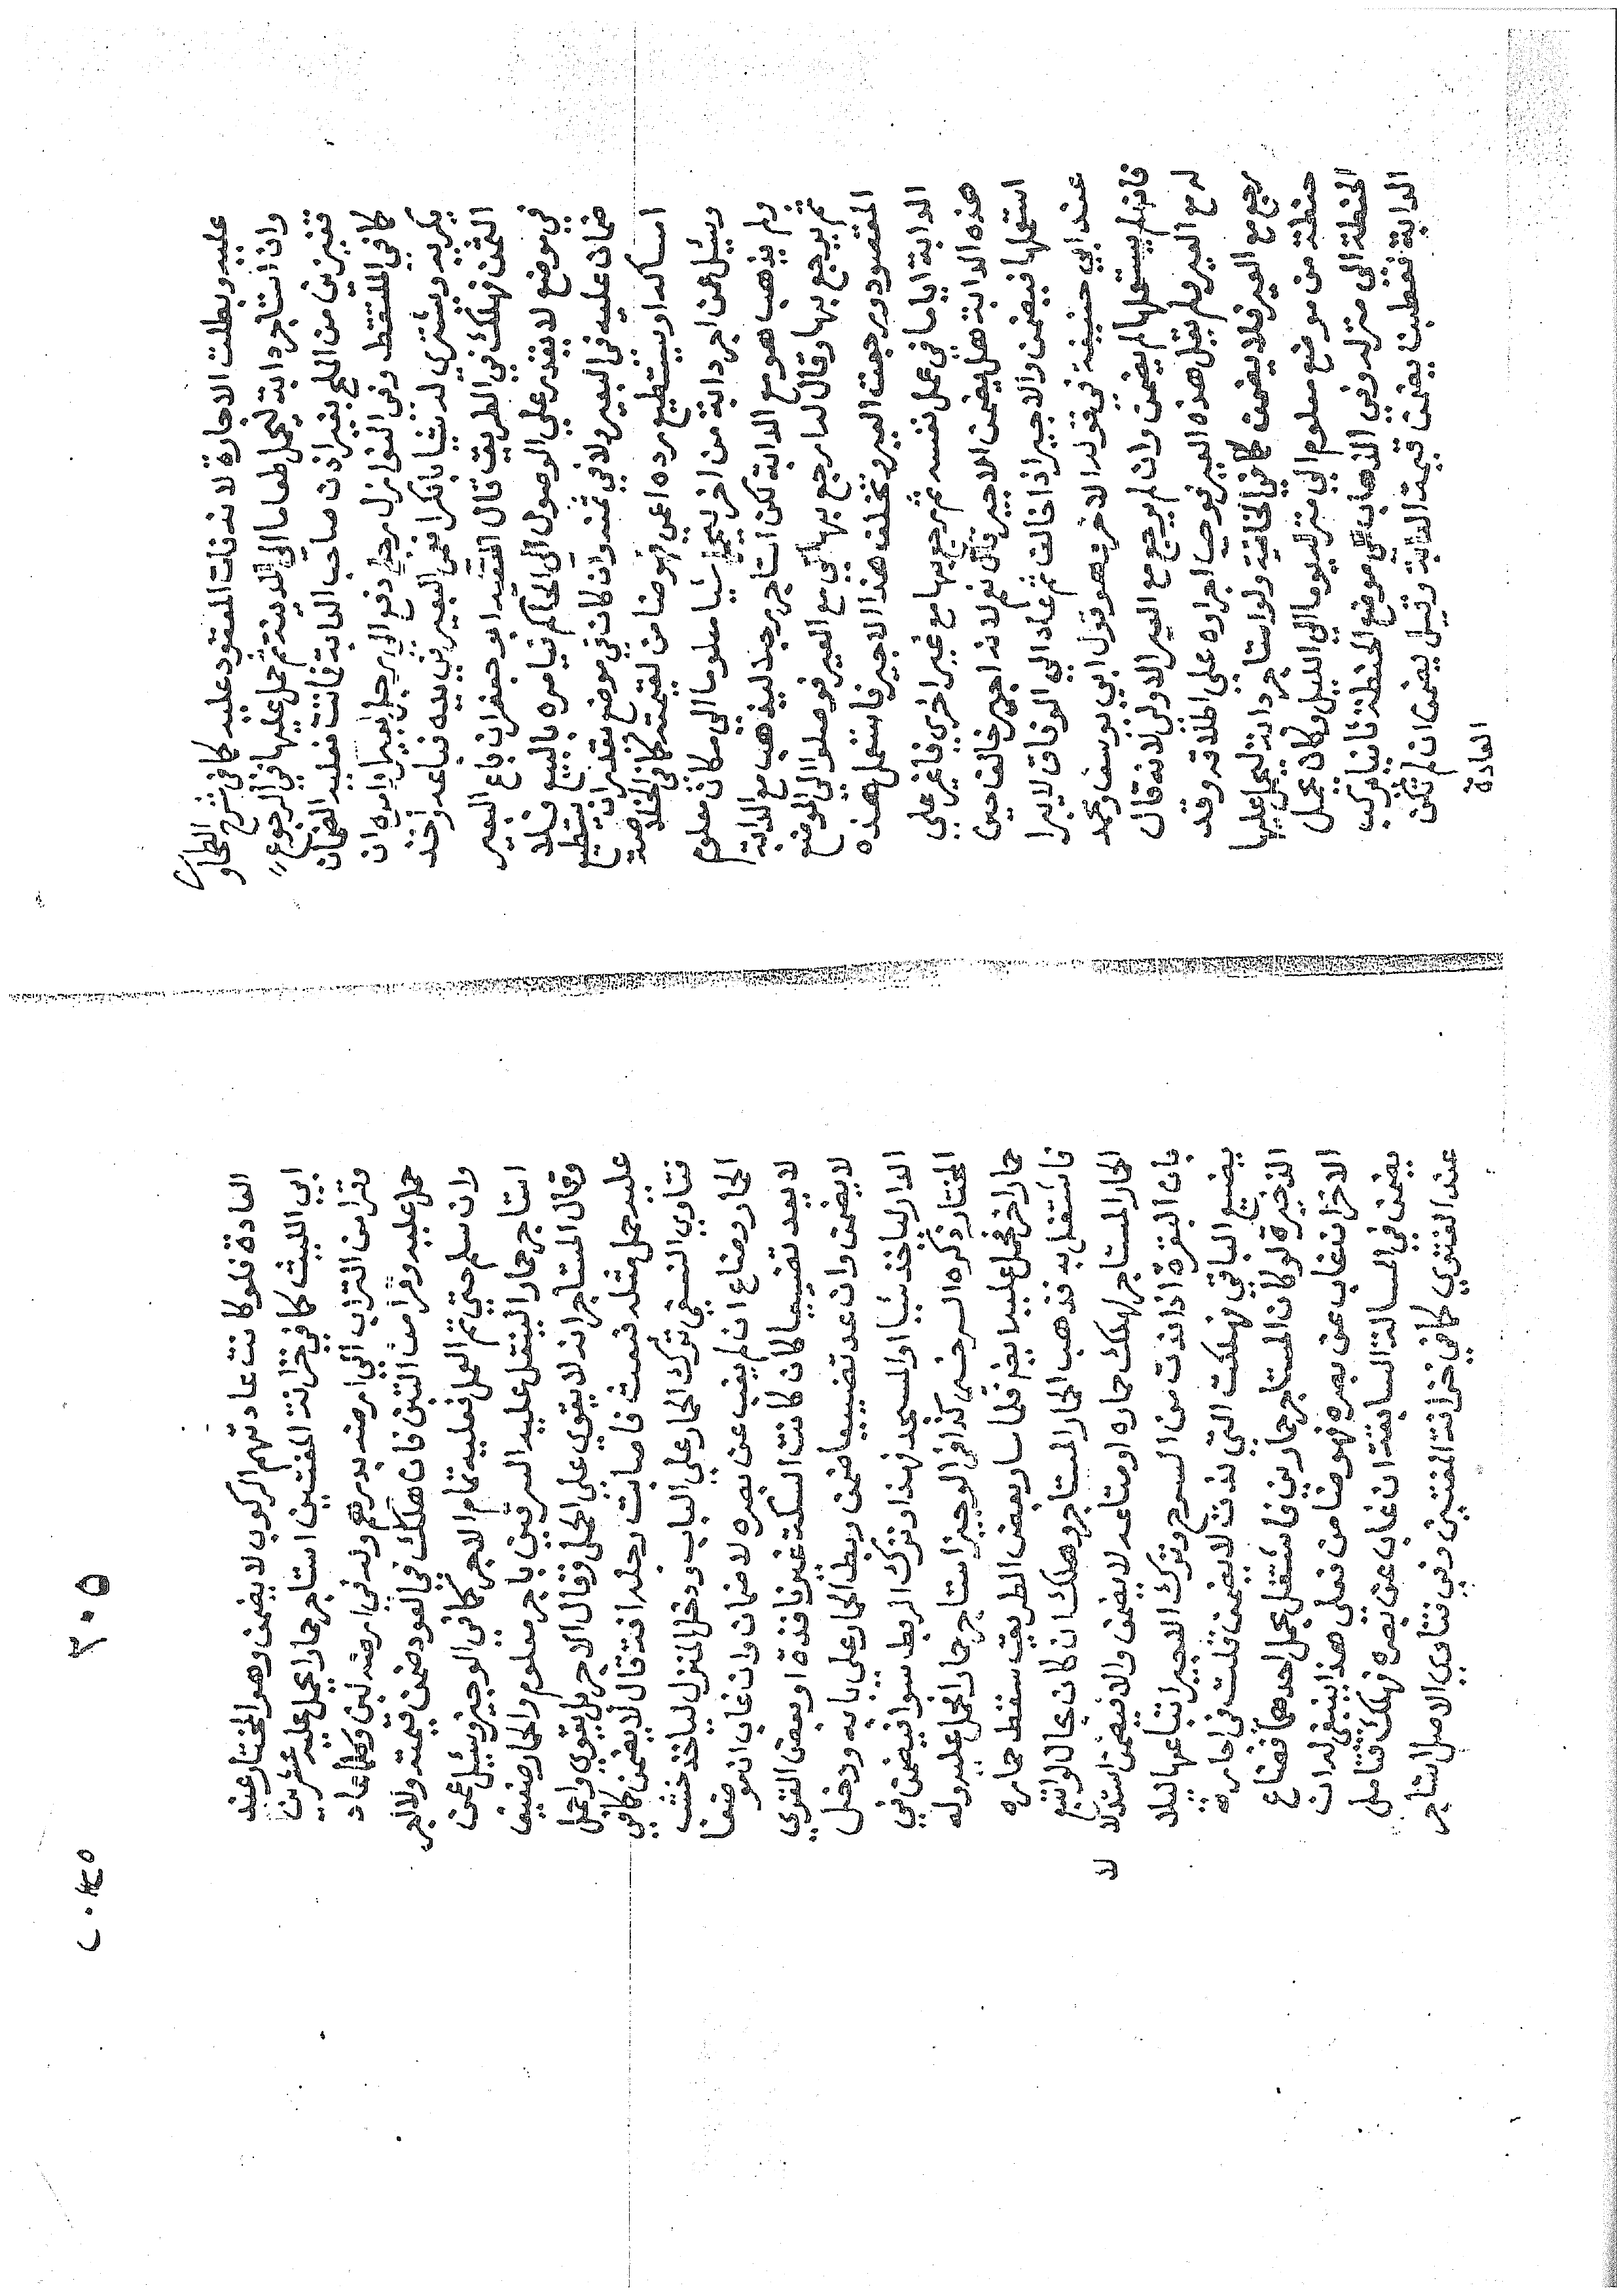 عليه وبطلت الاجارة لانه فات المعقود عليه كما في شرح الطحاوي
وان استاجر دابة ليحمل طعاما الى المدينة ثم حمل عليها في الرجوع
قفيزين من الملح بغير اذن صاحب الدابة فماتت فعليه الضمان
كما في الملتقط وفي النوازل رجل دفع الي رجل بعيرا وامره ان
يكريه ويشتري له شيئا بالكرا فعمى البعير في يديه فباعه واخذ
الثمن فهلك في الطريق قال الفقيه ابو جعفر ان باع البعير
في موضع لا يقدر علي الوصول الى الحاكم فيامره بالبيع فلا
ضمان عليه في البعير ولا في ثمنه وان كان في موضع يقدر ان يستطيع
امساكه او يستطيع رده اعمى فهو ضامن لقيمته كما في الخلاصة
وسئل عن اجر دابة من اخر ليحمل شيا معلوما الى مكان معلوم
ولم يذهب هو مع الدابة لكن استاجر رجلا ليذهب مع الدابة
ثم يرجع بها وقال له ارجع بها الي مع العير فوصلوا الى الموضع
المقصود ورجعت العير وتخلف هذا الاجير فاستعمل هذه
الدابة اياما في عمل نفسه ثم رجع بها مع عير اخري فاغير علي
هذه الدابة هل يضمن الاجير قال نعم لانه اجير خالف حين
استعملها فيضمن والاجير اذا خالف ثم عاد الي الوفاق لا يبرا
عند ابي حنيفة في قوله الاخر وهو قول ابي يوسف ومحمد
فان لم يستعملها لم يضمن وان لم يرجع مع العير الاولى لانه قال
له مع العير ولم يقل هذه العير فوجب اجراوه على اطلاقه وقد
رجع مع العير فلا يضمن كما في الخانية ولو استاجر دابة ليحمل عليها
حنطة من موضع معلوم الى منزله يوما الي الليل وكان يحمل
الحنطة الى منزله وفي الذهاب الى موضع الحنطة ثانيا يركب
الدابة فعطبت يضمن قيمة الدابة وقيل يضمن ان لم تكن
العادة
٢٠٥
٢٠٤٥
العادة فلو كانت عادتهم الركوب لا يضمن وهو المختار عند
ابي الليث كما في خزانة المفتين استاجر حمارا يحمل عليه عشرين
وقرا من التراب الى ارضه بدرهم وله في ارضه لبن وكلما عاد
حمل عليه وقرا من اللبن فان هلك في العود ضمن قيمته ولا اجر
وان سلم حتي تم العمل فعليه تمام الاجر كما في الوجيز وسئل عن
استاجر حمارا لينقل عليه السرقين باجر معلوم والحمار ضعيف
وقال المستاجر انه لا يقوي على الحمل وقال الاجر بل يقوي واحمل
عليه حمل مثله فمعت فاصابت رجله افة قال لا يضمن كما في
فتاوي النسفي ترك الحمار علي الباب ودخل المنزل لياخذ خشب
الحمار وضاع ان لم يغب عن بصره لا ضمان وان غاب ان موضعا
لا يعد تضييعا كان كانت السكة غير نافذة او بعض القرى
لا يضمن وان عد تضييعا ضمن ربط الحمار على بابه ودخل
الدار لياخذ شيا او المسجد فهذا وترك الربط سوا فيضمن في
المختار ذكره السرخسي كذا في الوجيز استاجر حمارا فحمل عليه وله
حمار اخر فحمل عليه ايضا فلما سار بعض الطريق سقط حماره
فاشتغل به فذهب الحمار المستاجر وهلك ان كان بحال لو اتبع
الحمار المستاجر لهلك حماره او متاعه لا يضمن والا فيضمن استدلالا
بان البقرة اذا ندت من السرح وترك الاجير اتباعها ليلا
يضيع الباقي فهلكت التي ندت لا يضمن قلت في اجارة
الذخيرة لو كان المستاجر حمارين فاشتغل بحمل احدهما فضاع
الاخر ان غاب عن بصره فهو ضامن فعلى هذا ينبغي له ان
يضمن في المسالة السابقة ان غاب عن بصره فهلك فتامل
عند الفتوي كما في خزانة المفتين وفي فتاوي الاصل استاجر